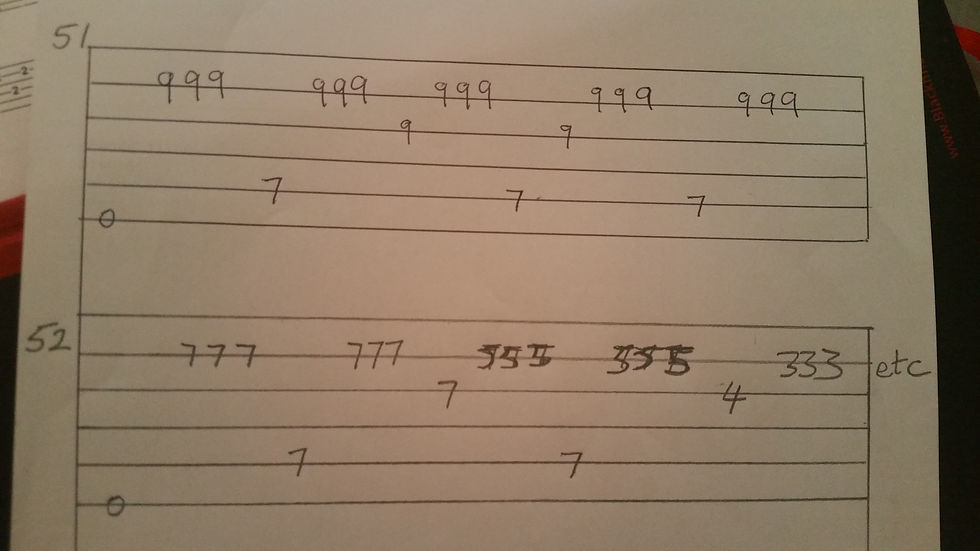 51
999 999 999 999 999
9 9
7 7 7
0
52
777 777 555 555 333 etc
7 4
7 7
0